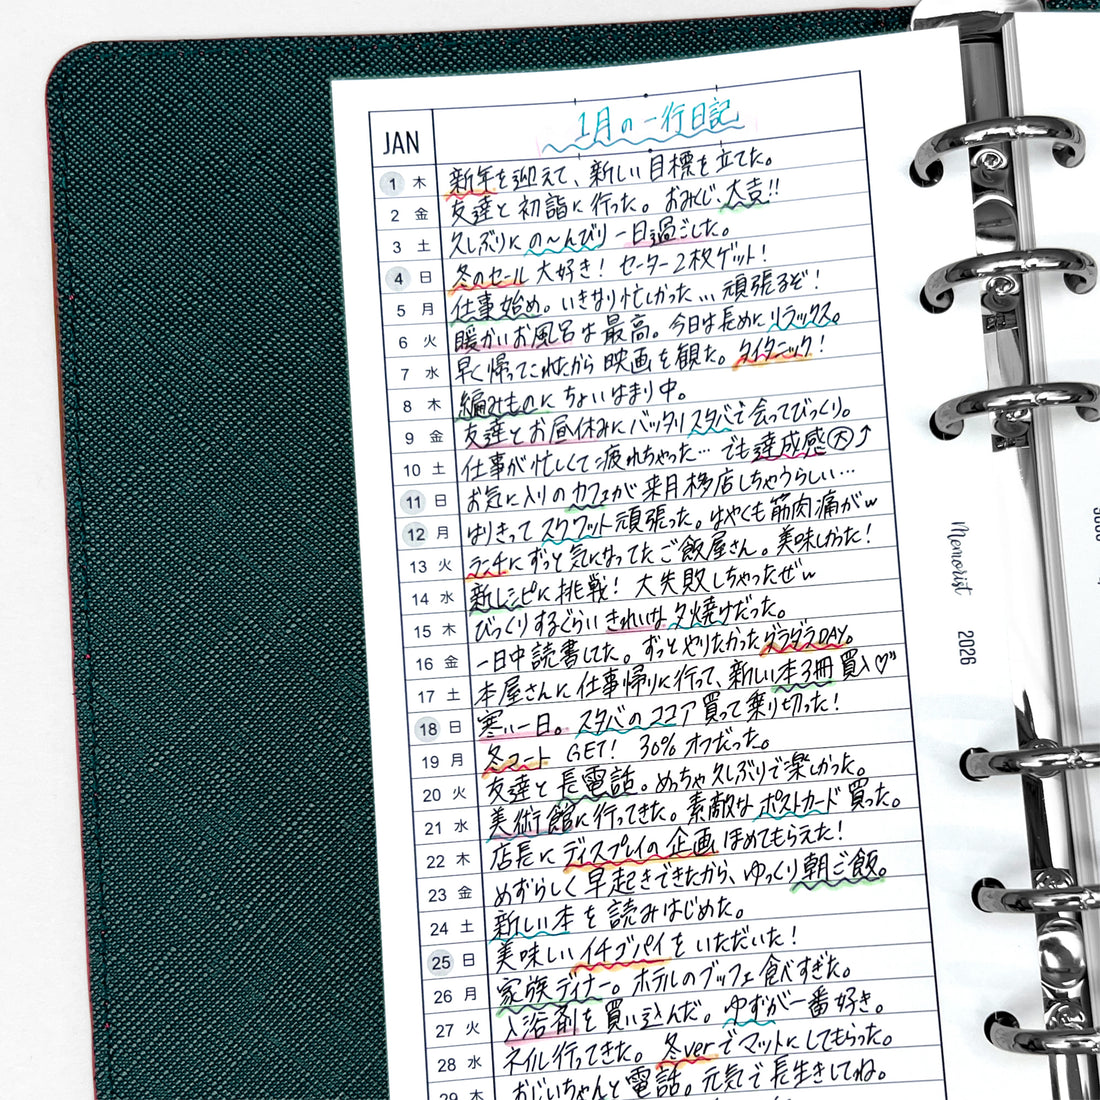 JAN 1月の一行日記
1 木 新年を迎えて、新しい目標を立てた。
2 金 友達と初詣に行った。おみくじ、大吉!!
3 土 久しぶりにの〜んびり一日過ごした。
4 日 冬のセール大好き！セーター2枚ゲット！
5 月 仕事始め。いきなり忙しかった…頑張るぞ！
6 火 暖かいお風呂は最高。今日は長めにリラックス。
7 水 早く帰ってこれたから映画を観た。タイタニック！
8 木 編みものにちょいはまり中。
9 金 友達とお昼休みにバッタリスタバで会ってびっくり。
10 土 仕事が忙しくて疲れちゃった…でも達成感大↑
11 日 お気に入りのカフェが来月移店しちゃうらしい…
12 月 はりきってスクワット頑張った。はやくも筋肉痛がw
13 火 ランチにずっと気になってたご飯屋さん。美味しかった！
14 水 新レシピに挑戦！大失敗しちゃったぜw
15 木 びっくりするぐらいきれいな夕焼けだった。
16 金 一日中読書してた。ずっとやりたかったダラダラDAY。
17 土 本屋さんに仕事帰りに行って、新しい本3冊買入♡"
18 日 寒い一日。スタバのココア買って乗り切った！
19 月 冬コート GET! 30%オフだった。
20 火 友達と長電話。めっちゃ久しぶりで楽しかった。
21 水 美術館に行ってきた。素敵なポストカード買った。
22 木 店長にディスプレイの企画ほめてもらえた！
23 金 めずらしく早起きできたから、ゆっくり朝ご飯。
24 土 新しい本を読みはじめた。
25 日 美味しいイチゴパイをいただいた！
26 月 家族ディナー。ホテルのブッフェ食べすぎた。
27 火 入浴剤を買い込んだ。ゆずが一番好き。
28 水 ネイル行ってきた。冬verでマットにしてもらった。
29 木 おじいちゃんと電話。元気で長生きしてね。
Memorist 2026